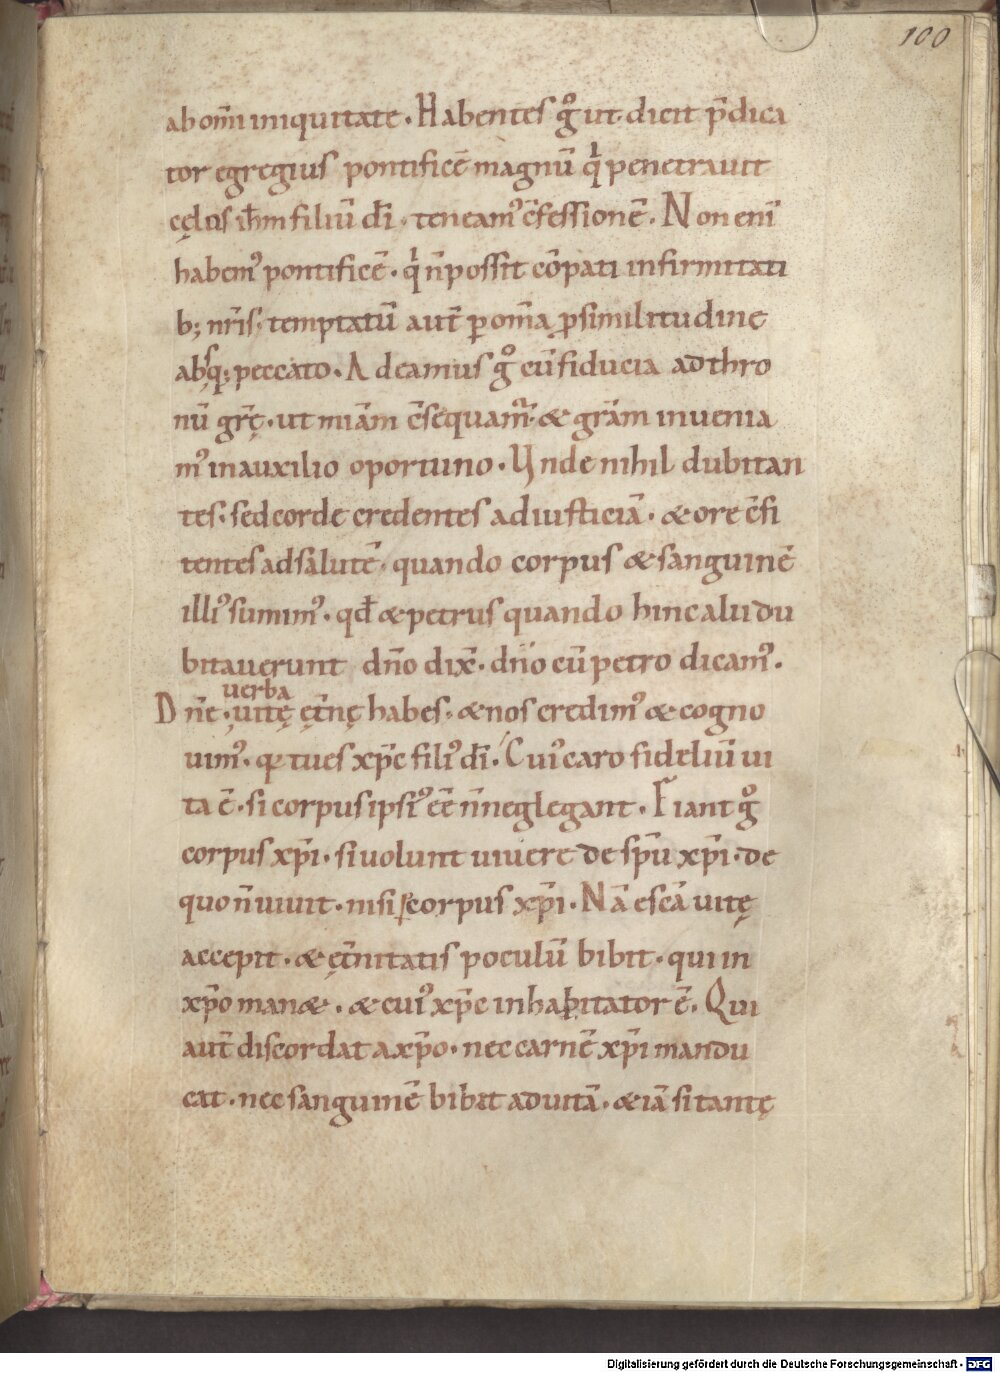 100
ab om̄i iniquitate. Habentes gͦ ut dicit p̄dica
tor egregius pontificē magnū qͥ penetrauit
cęlos ih̄m filiū dī. teneamꝰ c̄fessionē. Non eniꝫ
habemꝰ pontificē. qͥ n̄ possit cōpati infirmitati
b; nr̄is. temptatū aut̄ ꝑ om̄a ꝓ similitudine
absq; peccato. Adeamus gͦ cū fiducia ad thro
nū gr̄ę. ut miām c̄sequamr̄. & gr̄am inuenia
mꝰ in auxilio oportuno. Unde nihil dubitan
tes. sed corde credentes ad iusticiā. & ore c̄fi
tentes ad salutē. quando corpus & sanguinē
illiꝰ sumimꝰ. qd̄ & petrus quando hinc alii du
bitauerunt dn̄o dix̄. dn̄o cū petro dicamꝰ.
verba
Dn̄e. uitę ęt̄nę habes. & nos credimꝰ & cogno
uimꝰ. qꝛ tu es xp̄c filiꝰ dī. Cuiꝰ caro fideliū ui
ta ē. si corpus ipsiꝰ eē n̄ neglegant. Fiant gͦ
corpus xp̄i. si uolunt uiuere de sp̄u xp̄i. de
quo n̄ uiuit. nisi corpus xp̄i. Nā escā uitę
accepit. & ęt̄nitatis poculū bibit. qui in
xp̄o man&. & cuiꝰ xp̄c inhabitator ē. Qui
aut̄ discordat a xp̄o. nec carnē xp̄i mandu
cat. nec sanguinē bibit ad uitā. &iā si tantę
Digitalisierung gefördert durch die Deutsche Forschungsgemeinschaft - DFG